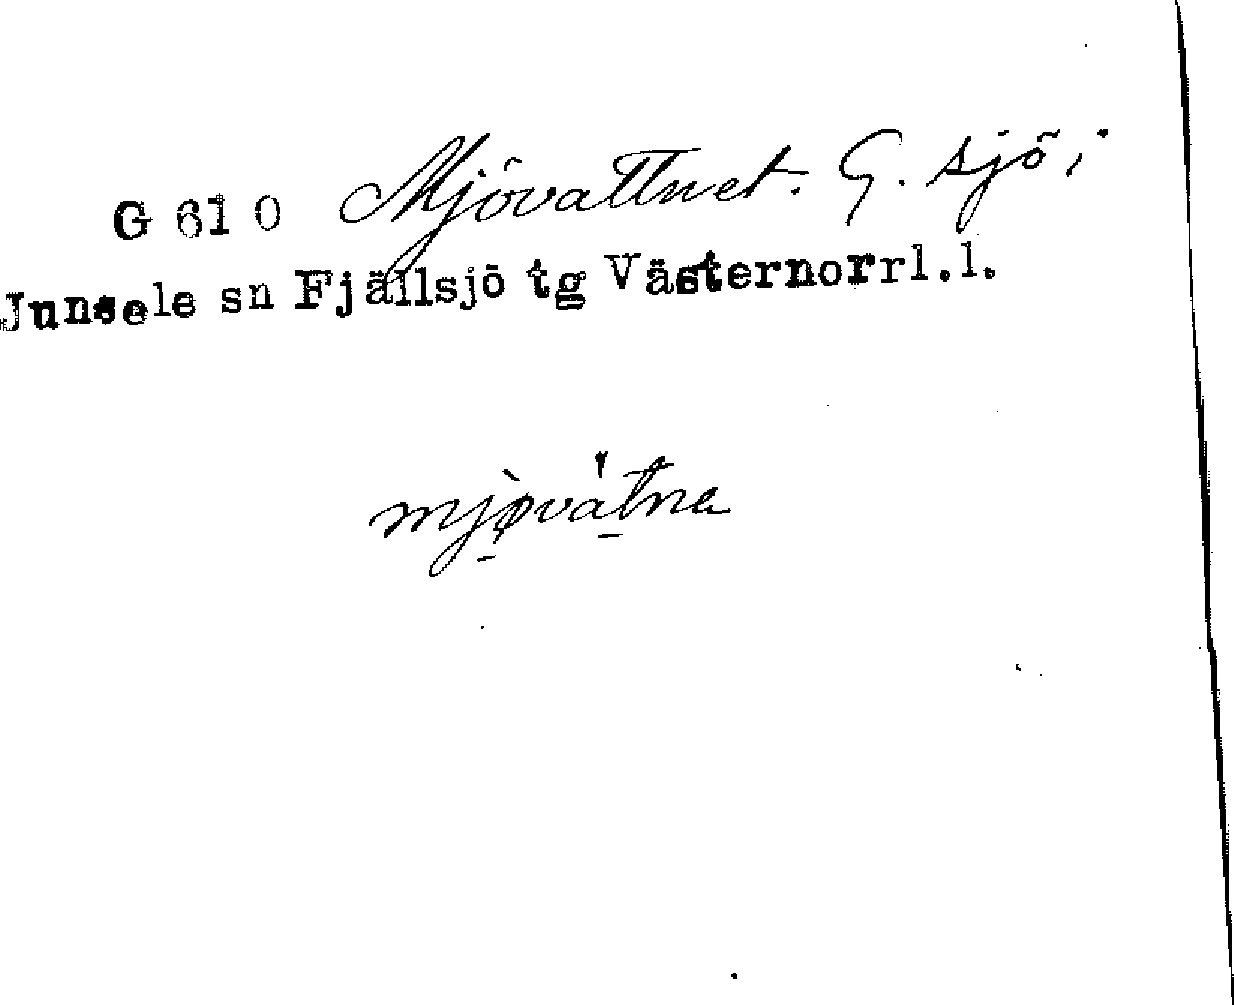 G 61 0 Mjövattnet. G. sjö i
Junsele sn Fjällsjö tg Västernorrl.l.
mjø̀vátna